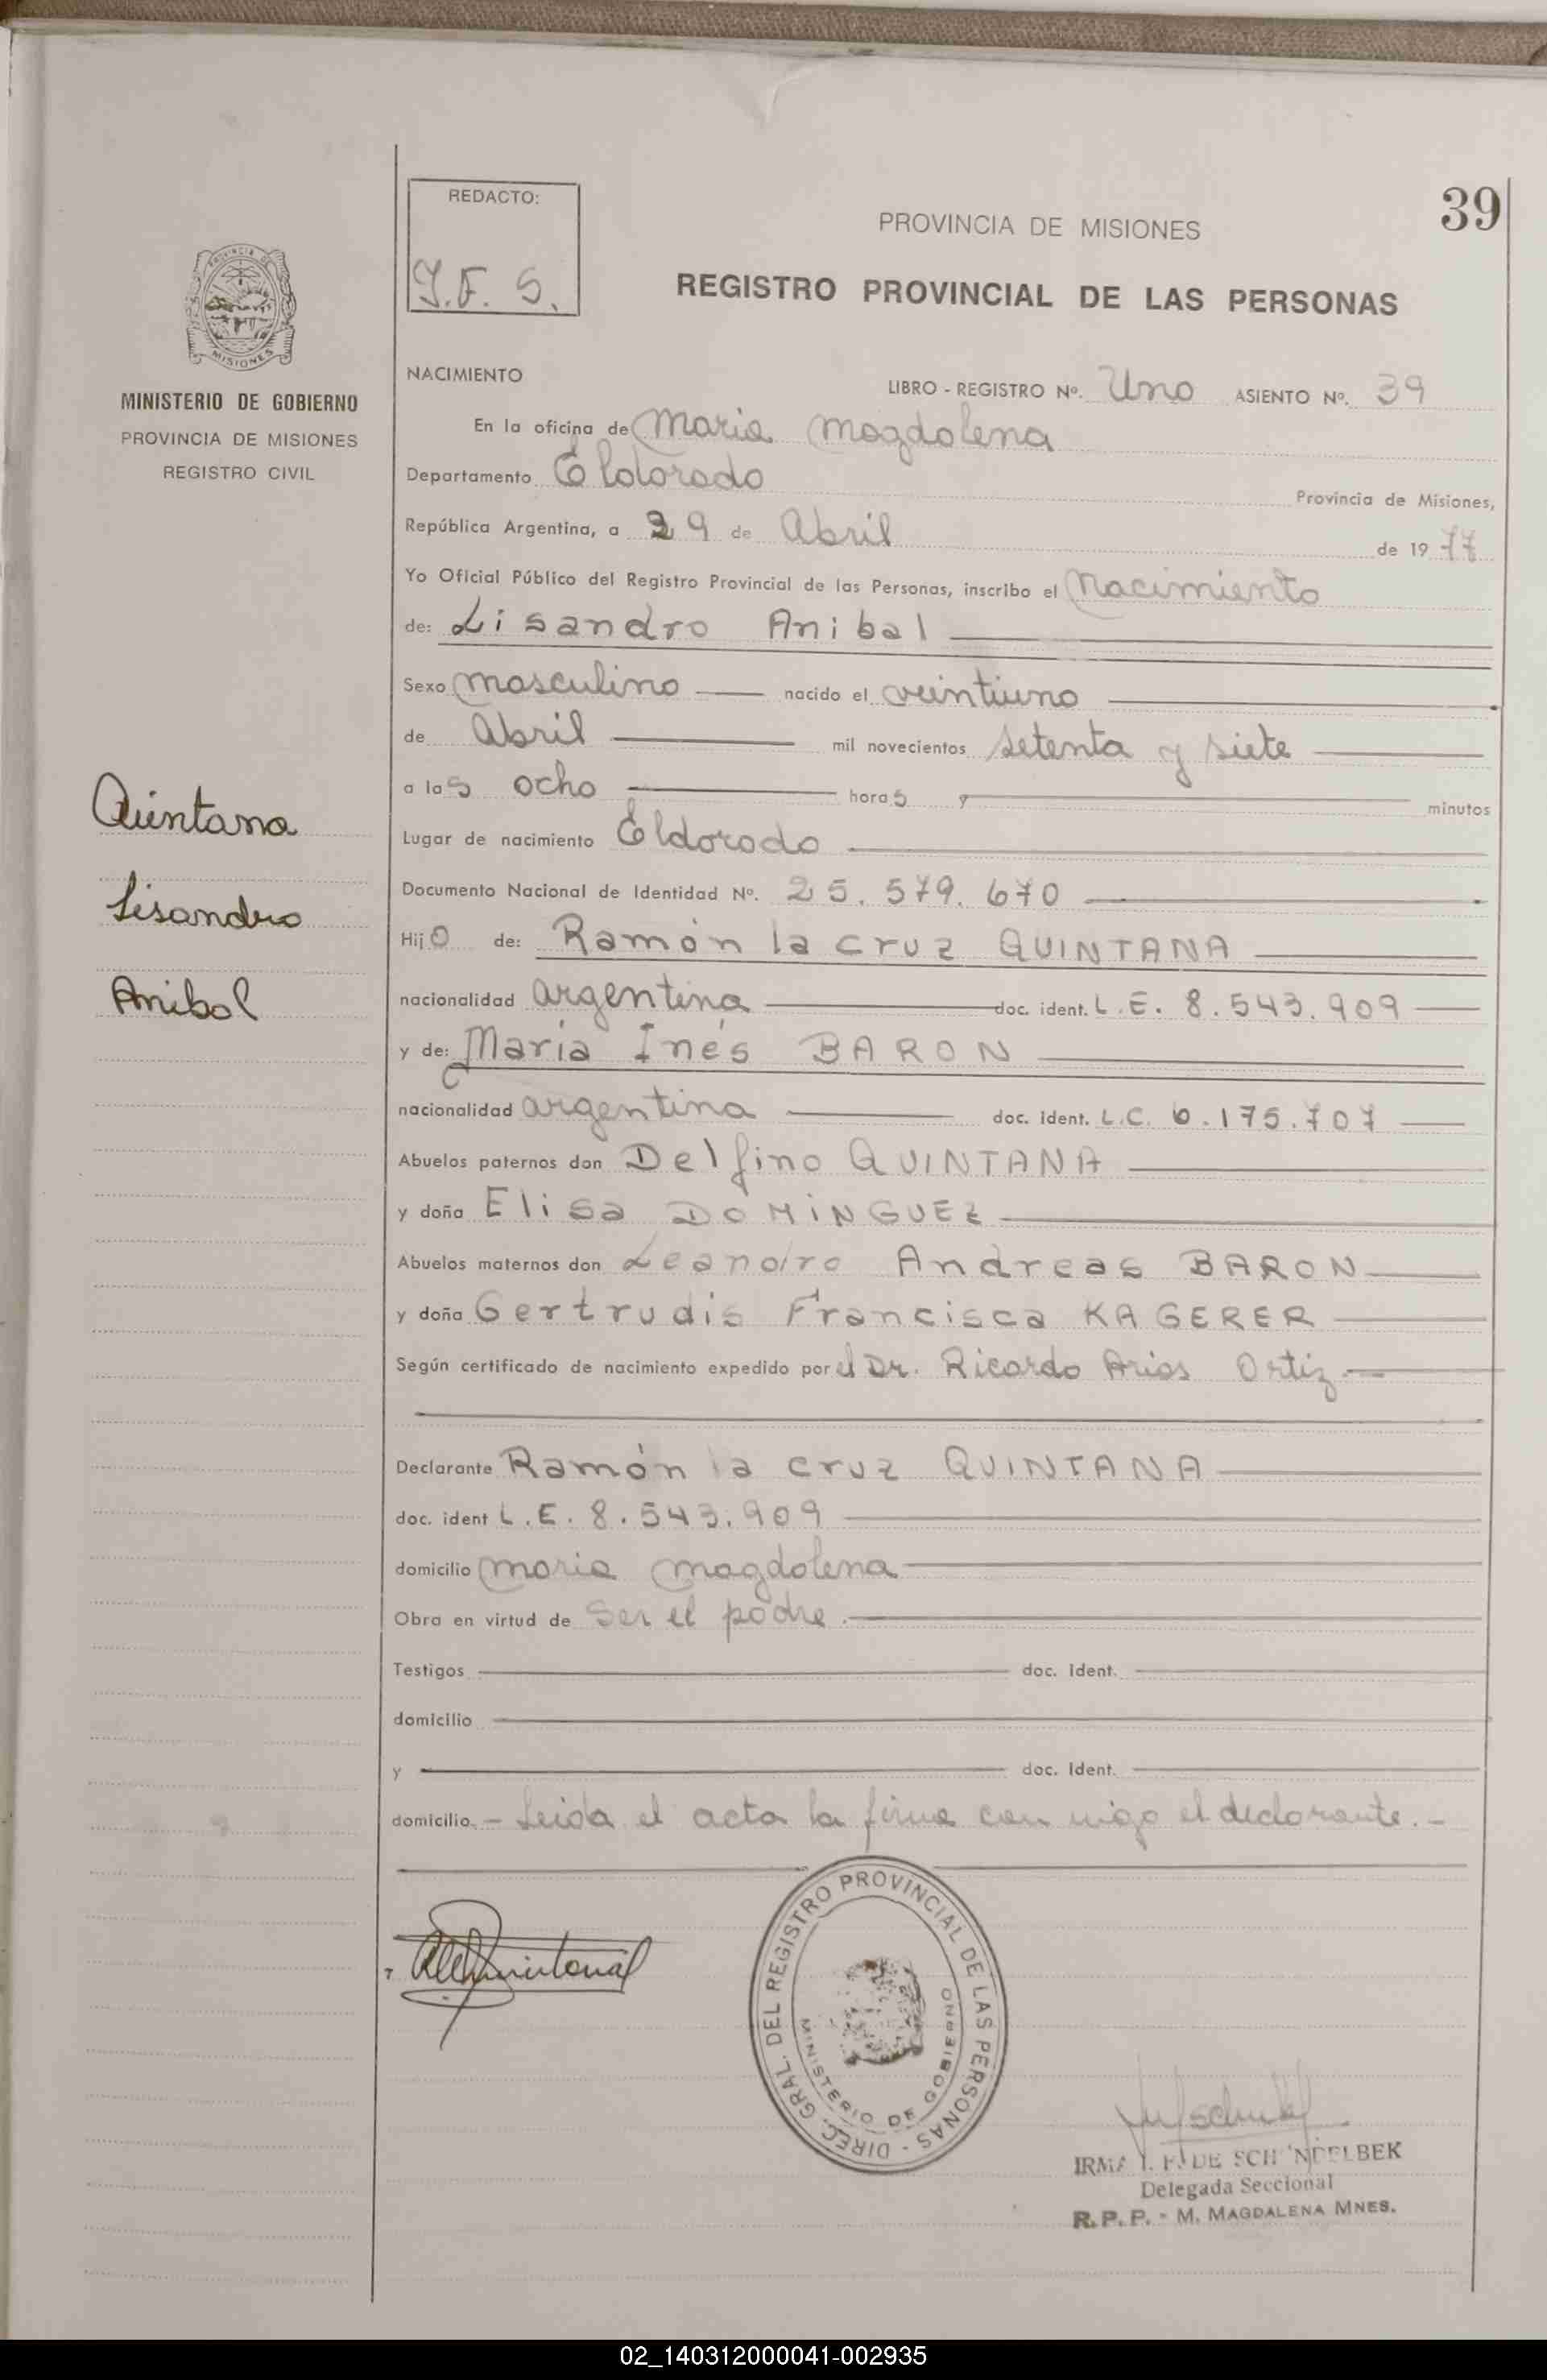 39
REDACTO:
PROVINCIA DE MISIONES
REGISTRO PROVINCIAL DE LAS PERSONAS
MISIONES
MINISTERIO DE GOBIERNO
PROVINCIA DE MISIONES
REGISTRO CIVIL
NACIMIENTO LIBRO - REGISTRO Nº. Uno ASIENTO Nº. 39
En la oficina de Maria Magdalena
Departamento Eldorado Provincia de Misiones,
República Argentina, a 29 de Abril de 1977
Yo Oficial Público del Registro Provincial de las Personas, inscribo el Nacimiento
de: Lisandro Anibal
Sexo masculino nacido el veintiuno
de Abril mil novecientos setenta y siete
a las ocho horas y minutos
Lugar de nacimiento Eldorado
Documento Nacional de Identidad Nº. 25.579.670
Hijo de: Ramón la cruz QUINTANA
nacionalidad argentina doc. ident. L.E. 8.543.909
y de: María Inés BARON
nacionalidad argentina doc. ident. L.C. 6.175.707
Abuelos paternos don Delfino QUINTANA
y doña Elisa DOMINGUEZ
Abuelos maternos don Leandro Andreas BARON
y doña Gertrudis Francisca KAGERER
Según certificado de nacimiento expedido por el Dr. Ricardo Arias Ortiz.
Declarante Ramón la cruz QUINTANA
doc. ident L.E. 8.543.909
domicilio Maria Magdalena
Obra en virtud de Ser el padre.
Testigos doc. ident.
domicilio
y doc. ident.
domicilio. - Leida el acta la firma con migo el declarante. -
Quintana
Lisandro
Anibal
DIREC. GRAL. DEL REGISTRO PROVINCIAL DE LAS PERSONAS -
MINISTERIO DE GOBIERNO
IRMA I. F. DE
Delegada Seccional
R. P. P. - M. MAGDALENA MNES.
02_140312000041-002935